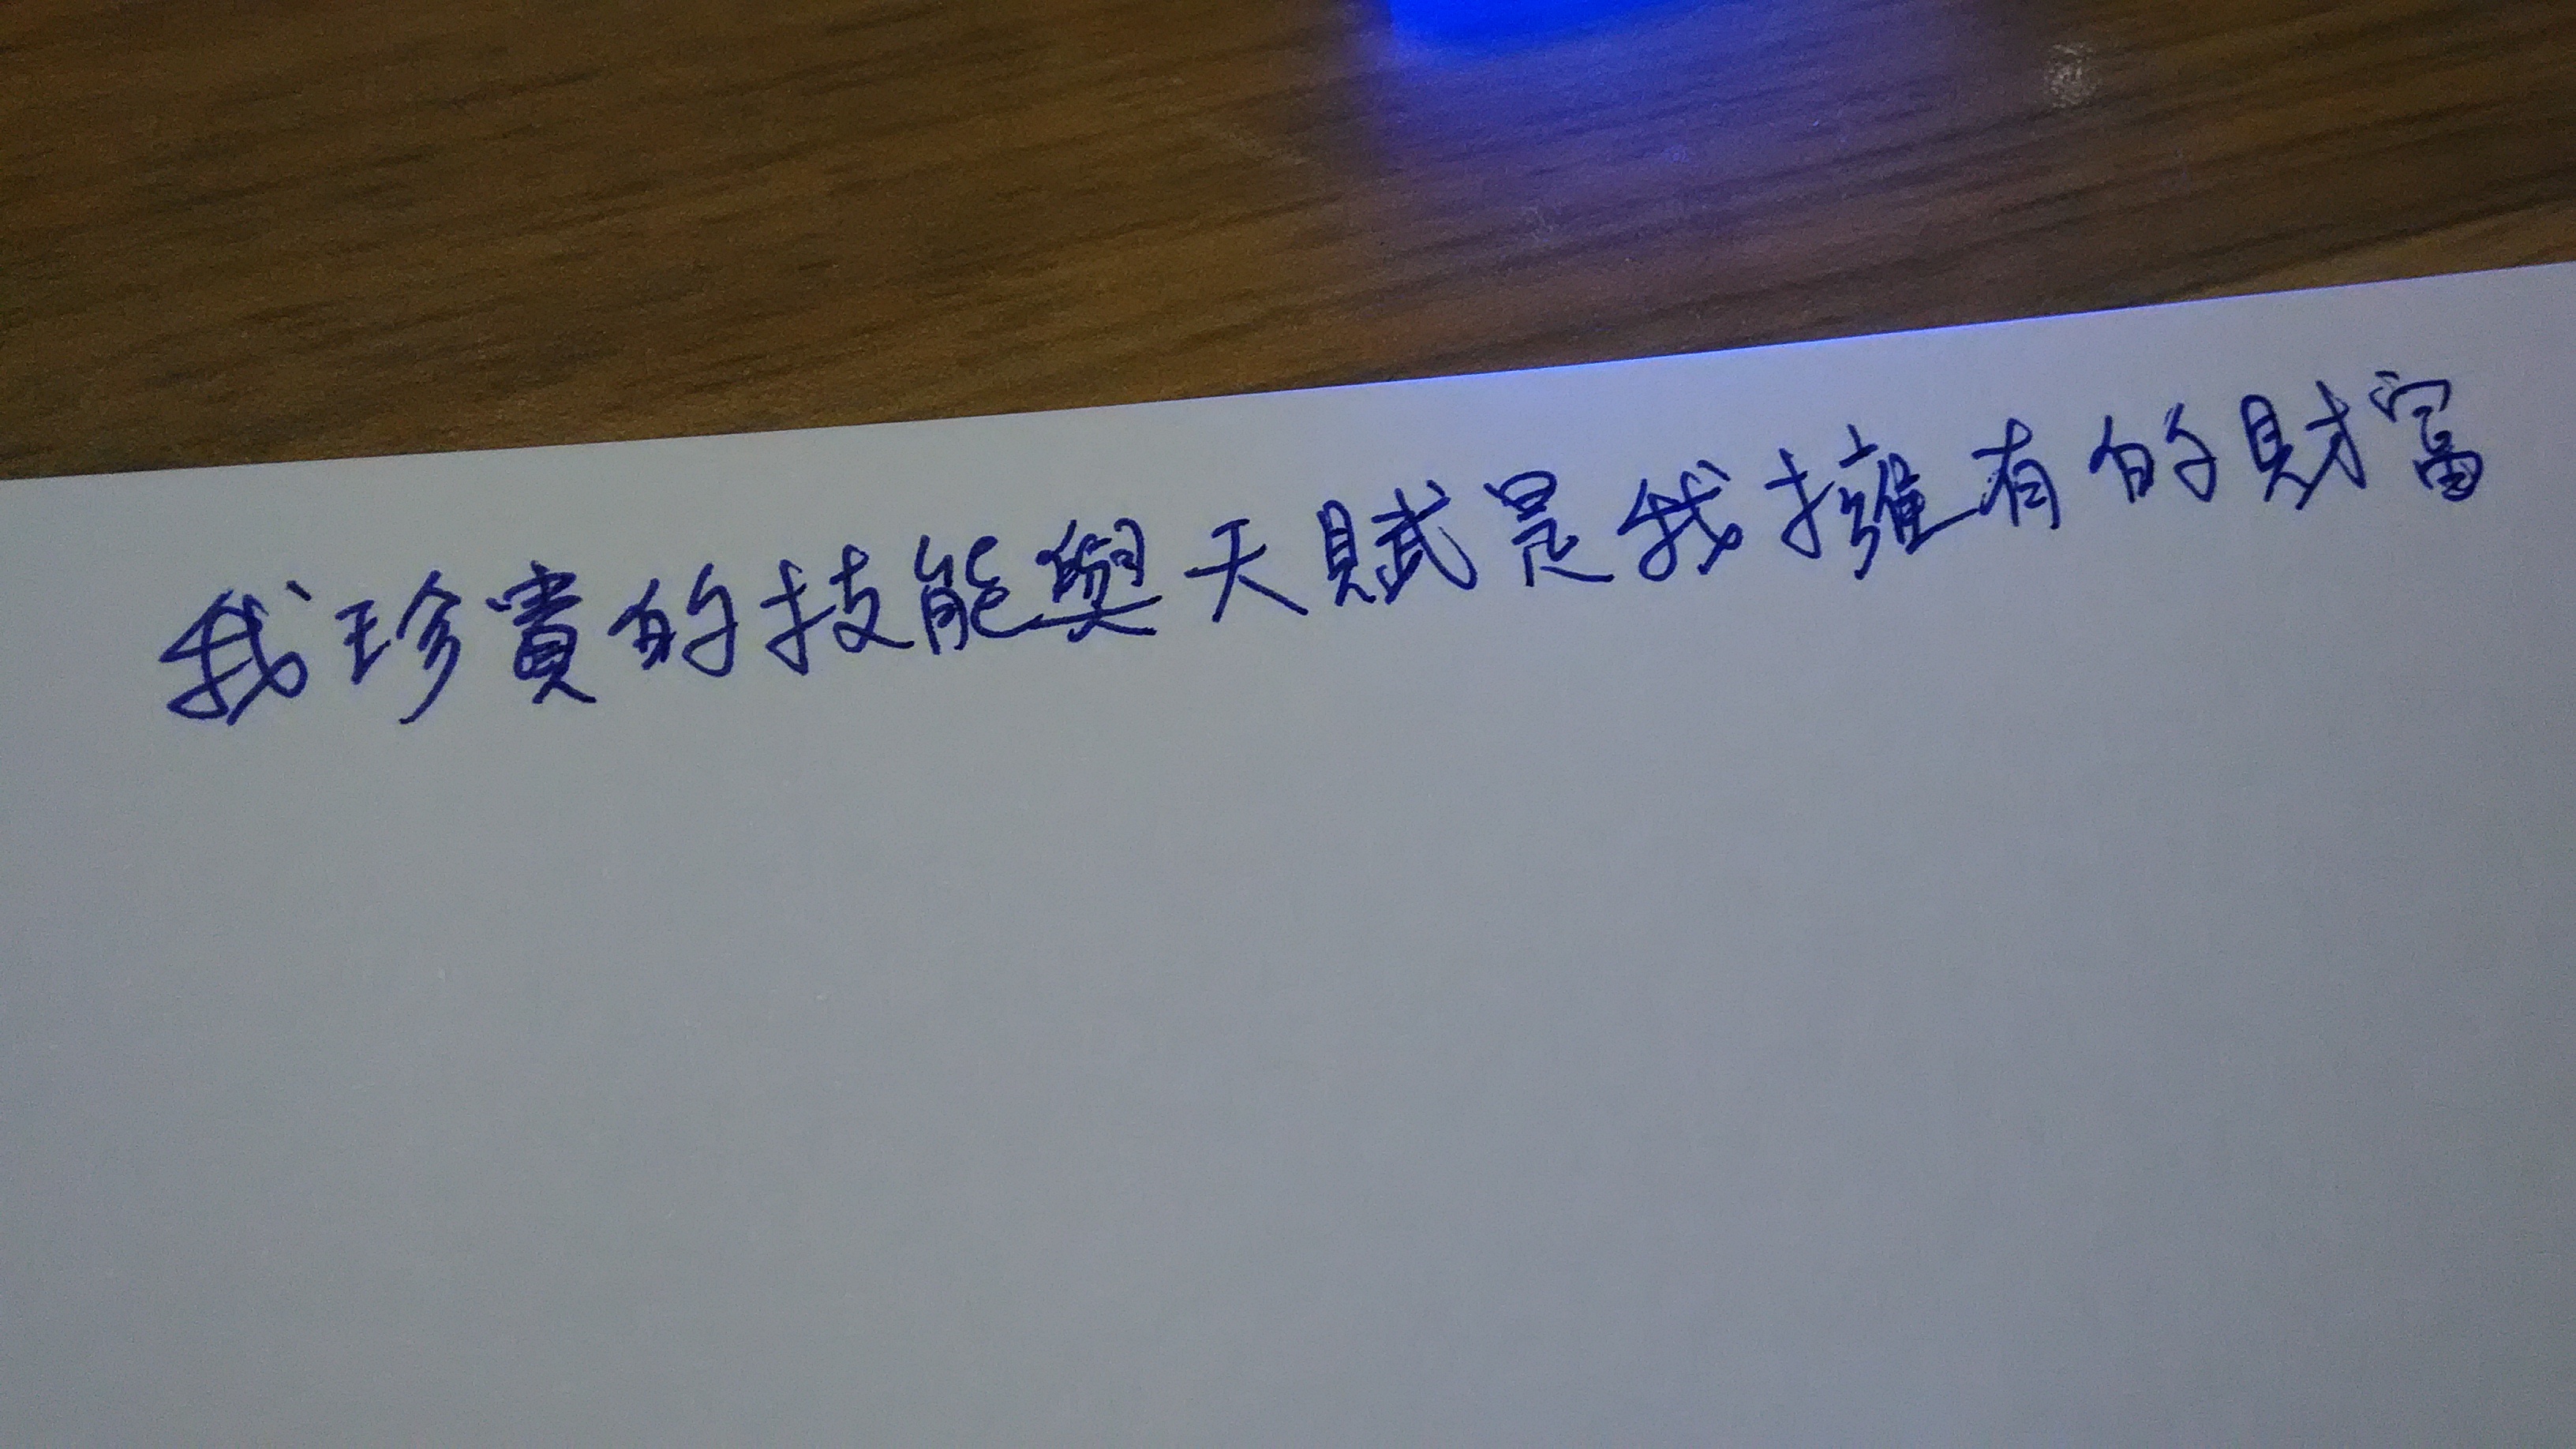 我珍貴的技能與天賦是我擁有的財富